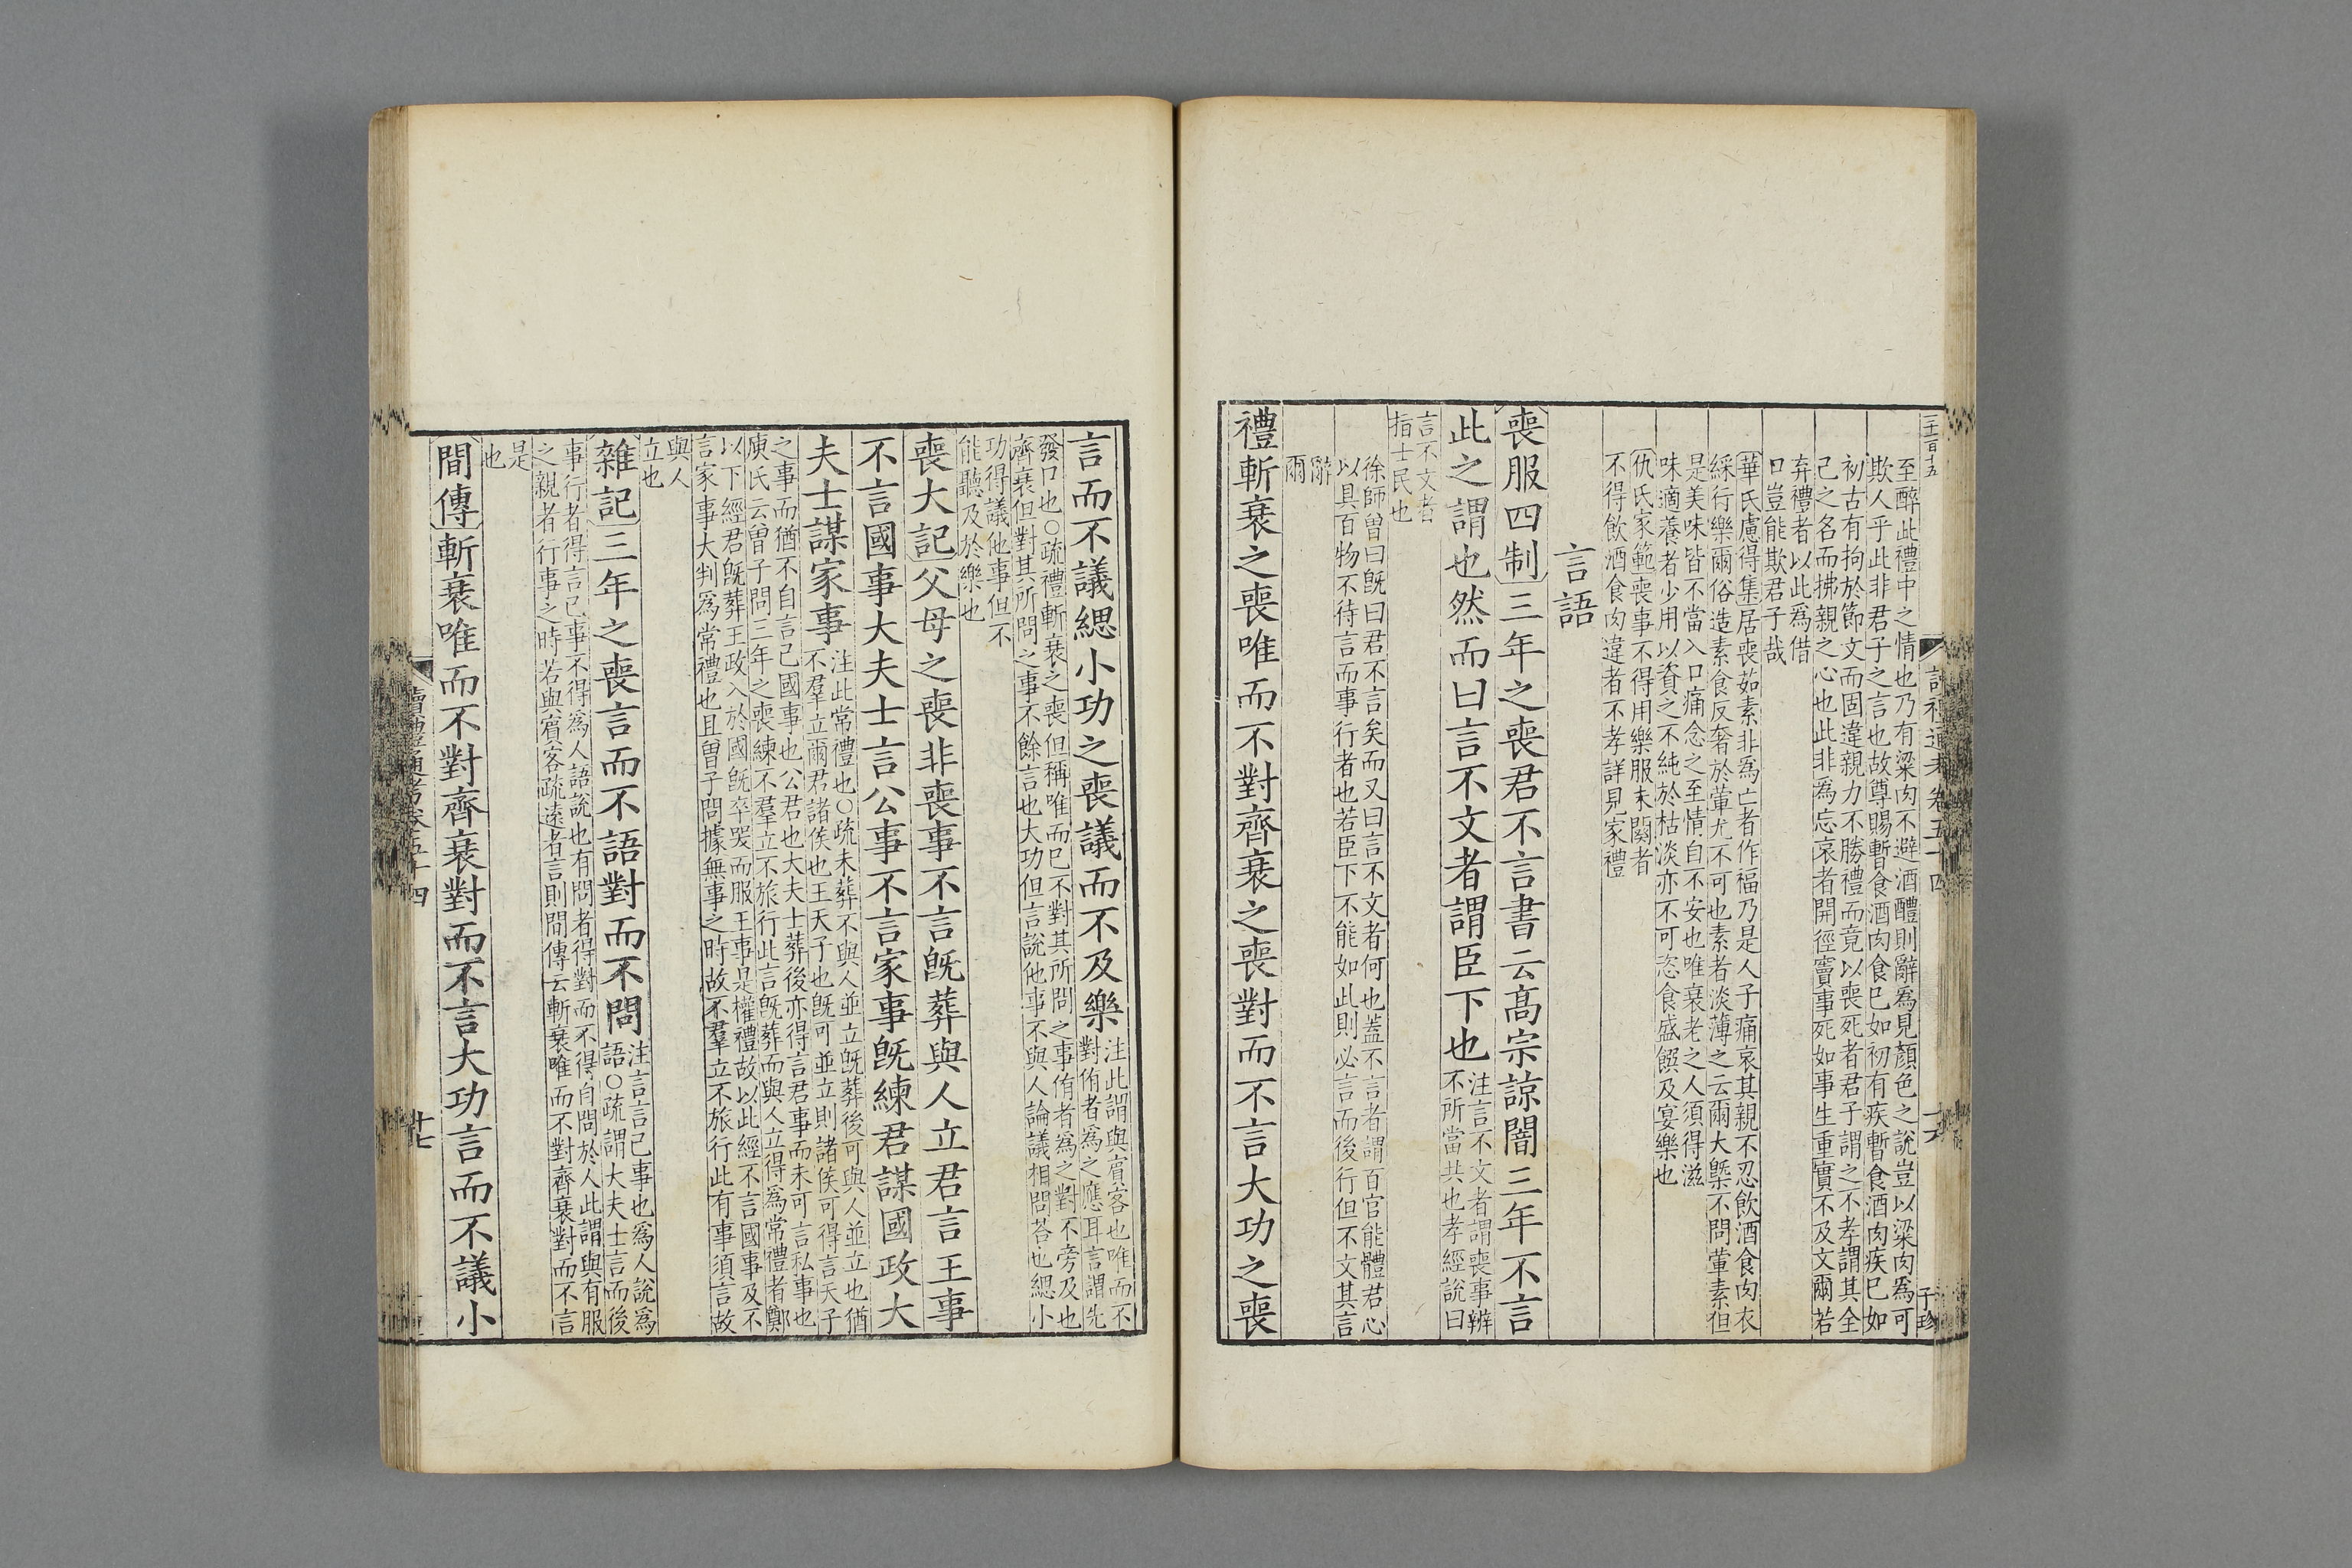 至醉此禮中之情也乃有粱肉不避酒醴則辭爲見顏色之說豈以粱肉爲可
欺人乎此非君子之言也故尊賜暫食酒肉食已如初有疾暫食酒肉疾已如
初古有拘於節文而固違親力不勝禮而竟以喪死者君子謂之不孝謂其全
己之名而拂親之心也此非爲忘哀者開徑竇事死如事生重實不及文爾若
弃禮者以此爲借
口豈能欺君子哉
華氏慮得集居喪茹素非爲亡者作福乃是人子痛哀其親不忍飲酒食肉衣
綵行樂爾俗造素食反奢於葷尤不可也素者淡薄之云爾大槩不問葷素但
是美味皆不當入口痛念之至情自不安也唯衰老之人須得滋
味適養者少用以資之不純於枯淡亦不可恣食盛饌及宴樂也
仇氏家範喪事不得用樂服未闋者
不得飲酒食肉違者不孝詳見家禮
言語
喪服四制三年之喪君不言書云高宗諒闇三年不言
此之謂也然而曰言不文者謂臣下也注言不文者謂喪事辨
不所當共也孝經說曰
言不文者
指士民也
徐師曾曰既曰君不言矣而又曰言不文者何也蓋不言者謂百官能體君心
以具百物不待言而事行者也若臣下不能如此則必言而後行但不文其言
辭
爾
禮斬衰之喪唯而不對齊衰之喪對而不言大功之喪
言而不議緦小功之喪議而不及樂注此謂與賓客也唯而不
對侑者爲之應耳言謂先
發口也○疏禮斬衰之喪但稱唯而已不對其所問之事侑者爲之對不旁及也
齊衰但對其所問之事不餘言也大功但言說他事不與人論議相問荅也緦小
功得議他事但不
能聽及於樂也
喪大記父母之喪非喪事不言既葬與人立君言王事
不言國事大夫士言公事不言家事既練君謀國政大
夫士謀家事注此常禮也○疏未葬不與人並立既葬後可與人並立也猶
不羣立爾君諸侯也王天子也既可並立則諸侯可得言天子
之事而猶不自言己國事也公君也大夫士葬後亦得言君事而未可言私事也
庾氏云曾子問三年之喪練不羣立不旅行此言既葬而與人立得爲常禮者鄭
以下經君既葬王政入於國既卒哭而服王事是權禮故以此經不言國事及不
言家事大判爲常禮也且曾子問據無事之時故不羣立不旅行此有事須言故
與人
立也
雜記三年之喪言而不語對而不問注言言己事也爲人說爲
語○疏謂大夫士言而後
事行者得言己事不得爲人語說也有問者得對而不得自問於人此謂與有服
之親者行事之時若與賓客疏遠者言則間傳云斬衰唯而不對齊衰對而不言
是
也
間傳斬衰唯而不對齊衰對而不言大功言而不議小